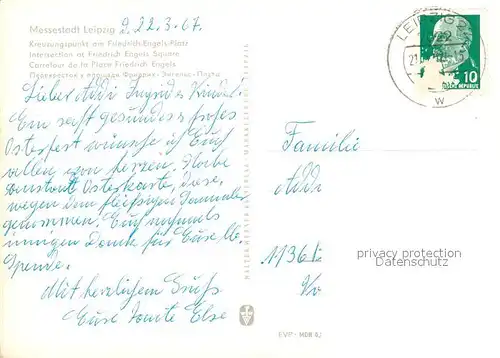 Messestadt Leipzig
d. 22.3.67.
Kreuzungspunkt am Friedrich-Engels-Platz
Intersection at Friedrich Engels Square
Carrefour de la Place Friedrich Engels
Перекресток у площади Фридрих-Энгельс-Платц
Lieber Addi Ingrid u. Kinder!
Ein recht gesundes u. frohes
Osterfest wünsche ich Euch
allen von Herzen. Habe
Osterkarte, diese,
wegen dem fleißigen Sammler
genommen. Euch nochmals
innigen Dank für Eure
Spende.
Mit herzlichem Gruß
Eure Tante Else
LEIPZIG
10
DEUTSCHE DEMOKRATISCHE REPUBLIK
w
Familie
Addi
privacy protection
Datenschutz
EVP: MDN 0,